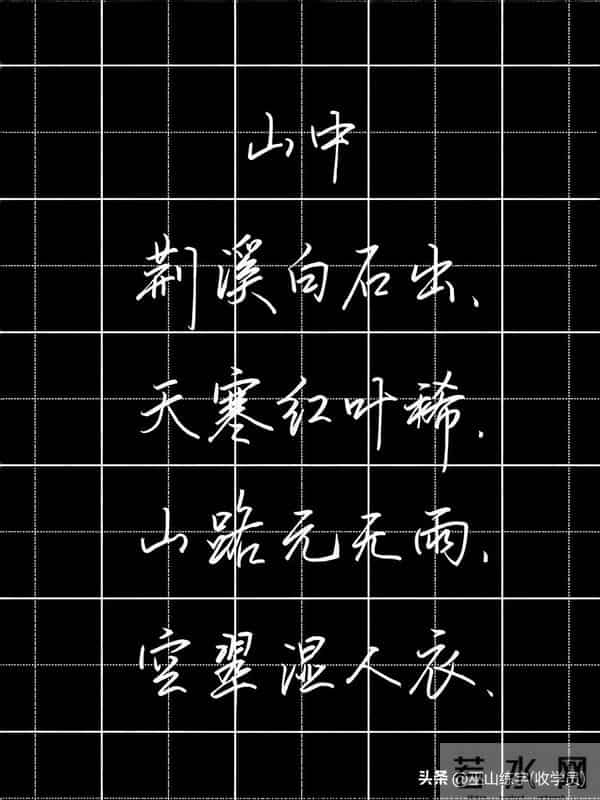 山中
荆溪白石出、
天寒红叶稀.
山路元无雨、
空翠湿人衣、
头条@巫山练字(收学员)
若水网